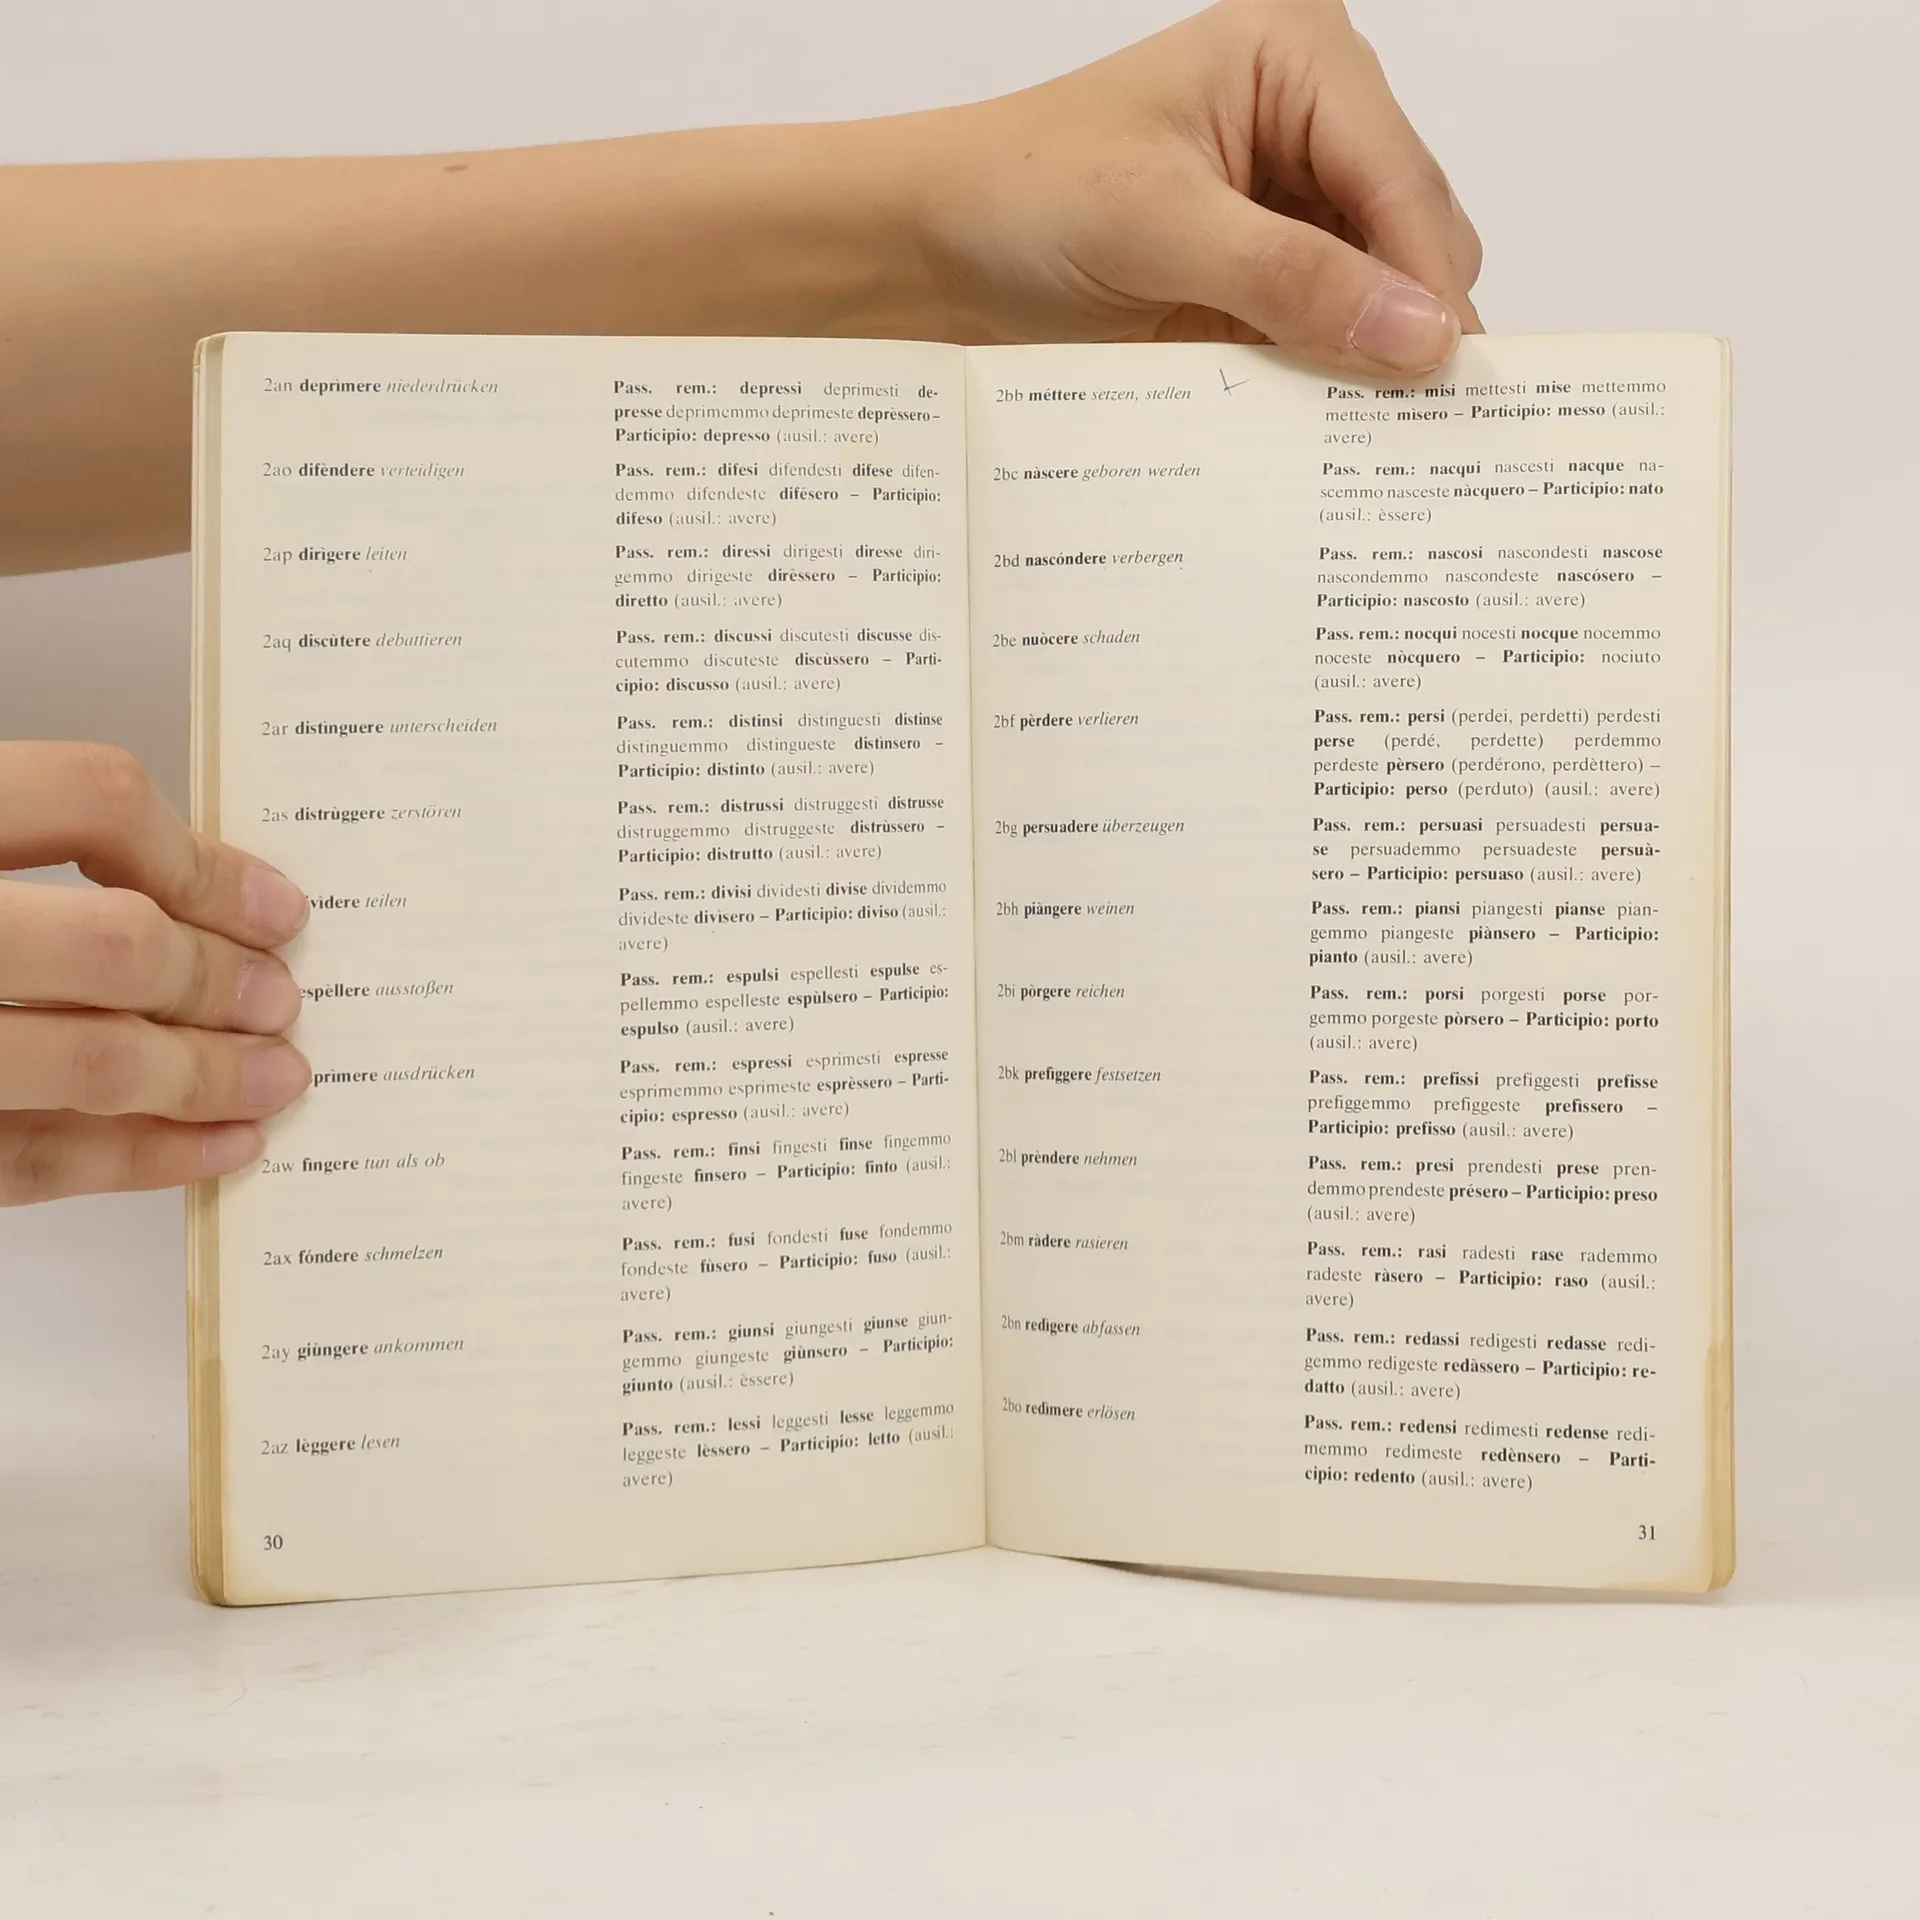 2an deprìmere niederdrücken
Pass. rem.: depressi deprimesti de-
presse deprimemmo deprimeste deprèssero –
Participio: depresso (ausil.: avere)
2ao difèndere verteidigen
Pass. rem.: difesi difendesti difese difen-
demmo difendeste difésero – Participio:
difeso (ausil.: avere)
2ap dirìgere leiten
Pass. rem.: diressi dirigesti diresse diri-
gemmo dirigeste dirèssero – Participio:
diretto (ausil.: avere)
2aq discùtere debattieren
Pass. rem.: discussi discutesti discusse dis-
cutemmo discuteste discùssero – Parti-
cipio: discusso (ausil.: avere)
2ar distìnguere unterscheiden
Pass. rem.: distinsi distinguesti distinse
distinguemmo distingueste distìnsero –
Participio: distinto (ausil.: avere)
2as distrùggere zerstören
Pass. rem.: distrussi distruggesti distrusse
distruggemmo distruggeste distrùssero –
Participio: distrutto (ausil.: avere)
vìdere teilen
Pass. rem.: divisi dividesti divise dividemmo
divideste divìsero – Participio: diviso (ausil.:
avere)
espèllere ausstoßen
Pass. rem.: espulsi espellesti espulse es-
pellemmo espelleste espùlsero – Participio:
espulso (ausil.: avere)
prìmere ausdrücken
Pass. rem.: espressi esprimesti espresse
esprimemmo esprimeste esprèssero – Parti-
cipio: espresso (ausil.: avere)
2aw fìngere tun als ob
Pass. rem.: finsi fingesti finse fingemmo
fingeste fìnsero – Participio: finto (ausil.:
avere)
2ax fóndere schmelzen
Pass. rem.: fusi fondesti fuse fondemmo
fondeste fùsero – Participio: fuso (ausil.:
avere)
2ay giùngere ankommen
Pass. rem.: giunsi giungesti giunse giun-
gemmo giungeste giùnsero – Participio:
giunto (ausil.: èssere)
2az lèggere lesen
Pass. rem.: lessi leggesti lesse leggemmo
leggeste lèssero – Participio: letto (ausil.:
avere)
30
2bb méttere setzen, stellen
Pass. rem.: misi mettesti mise mettemmo
metteste mìsero – Participio: messo (ausil.:
avere)
2bc nàscere geboren werden
Pass. rem.: nacqui nascesti nacque na-
scemmo nasceste nàcquero – Participio: nato
(ausil.: èssere)
2bd nascóndere verbergen
Pass. rem.: nascosi nascondesti nascose
nascondemmo nascondeste nascósero –
Participio: nascosto (ausil.: avere)
2be nuòcere schaden
Pass. rem.: nocqui nocesti nocque nocemmo
noceste nòcquero – Participio: nociuto
(ausil.: avere)
2bf pèrdere verlieren
Pass. rem.: persi (perdei, perdetti) perdesti
perse (perdé, perdette) perdemmo
perdeste pèrsero (perdérono, perdèttero) –
Participio: perso (perduto) (ausil.: avere)
2bg persuadere überzeugen
Pass. rem.: persuasi persuadesti persua-
se persuademmo persuadeste persuà-
sero – Participio: persuaso (ausil.: avere)
2bh piàngere weinen
Pass. rem.: piansi piangesti pianse pian-
gemmo piangeste piànsero – Participio:
pianto (ausil.: avere)
2bi pòrgere reichen
Pass. rem.: porsi porgesti porse por-
gemmo porgeste pòrsero – Participio: porto
(ausil.: avere)
2bk prefìggere festsetzen
Pass. rem.: prefissi prefiggesti prefisse
prefiggemmo prefiggeste prefìssero –
Participio: prefisso (ausil.: avere)
2bl prèndere nehmen
Pass. rem.: presi prendesti prese pren-
demmo prendeste présero – Participio: preso
(ausil.: avere)
2bm ràdere rasieren
Pass. rem.: rasi radesti rase rademmo
radeste ràsero – Participio: raso (ausil.:
avere)
2bn redìgere abfassen
Pass. rem.: redassi redigesti redasse redi-
gemmo redigeste redàssero – Participio: re-
datto (ausil.: avere)
2bo redìmere erlösen
Pass. rem.: redensi redimesti redense redi-
memmo redimeste redènsero – Parti-
cipio: redento (ausil.: avere)
31